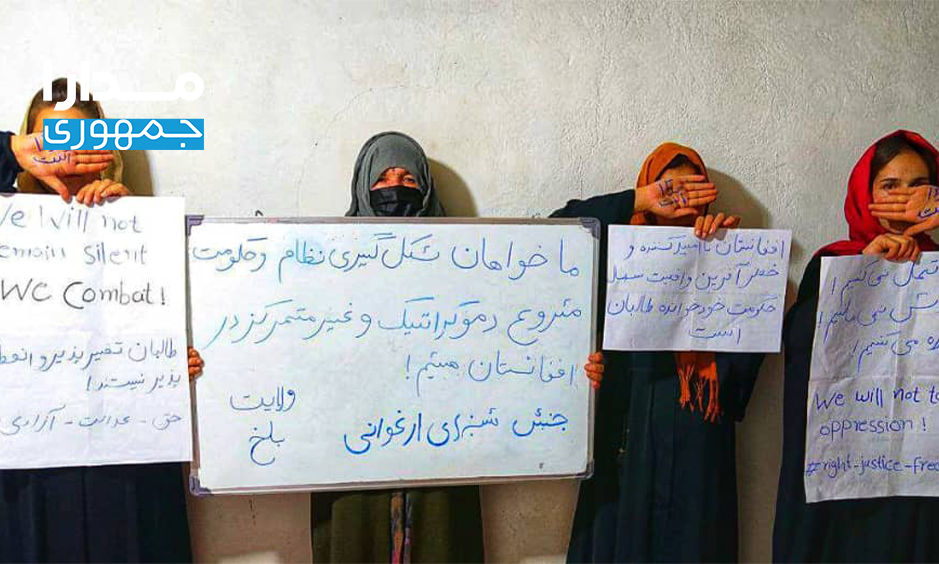 مدارا
جمهوری
We Will not
remain Silent
We Combat!
طالبان تغیر پذیر و انعطا
پذیر نیستند!
حق - عدالت - آزادی
ما خواهان شکل گیری نظام و حکومت
مشروع دموکراتیک و غیر متمرکز در
افغانستان هستیم!
جنبش شنبه‌های ارغوانی
ولایت
بلخ
افغانستان ناامید کننده و
حکومت خودخوانده طالبان
است
تحمل نمی کنیم!
می کنیم!
We will not to
oppression!
#right-justice-Free